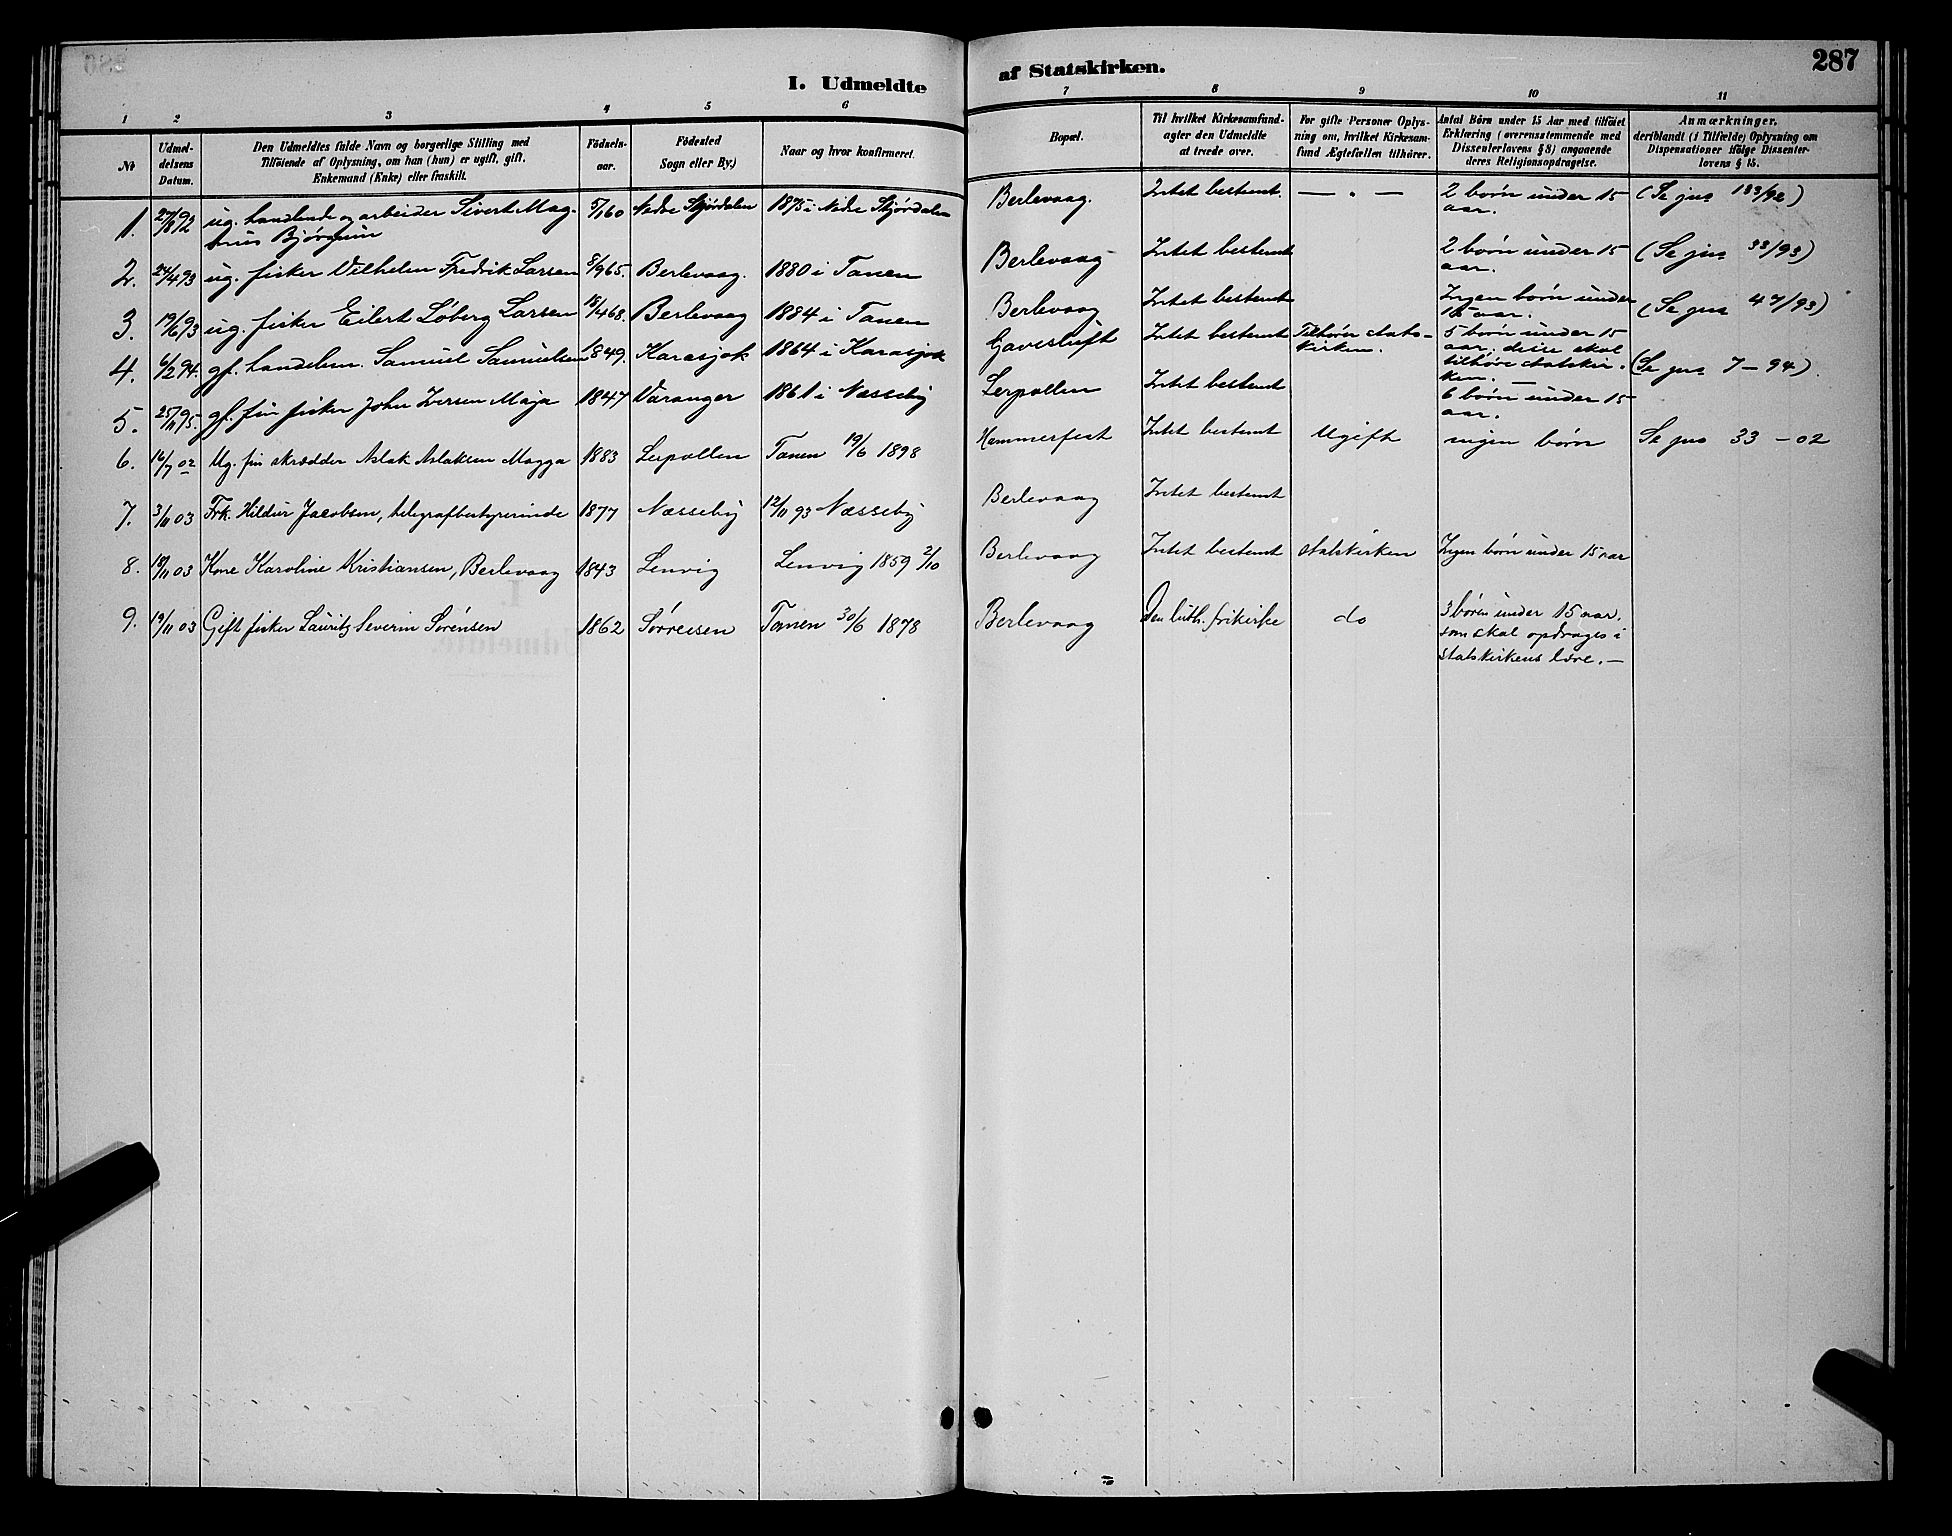 287
I. Udmeldte af Statskirken.
1 2 3 4 5 6 7 8 9 10 11
No
Udmel-
delsens
Datum.
Den Udmeldtes fulde Navn og borgerlige Stilling med
Tilföiende af Oplysning, om han (hun) er ugift, gift,
Enkemand (Enke) eller fraskilt.
Födsels-
aar.
Födested
Sogn eller By.)
Naar og hvor konfirmeret.
Bopæl.
Til hvilket Kirkesamfund-
agter den Udmeldte
at træde over.
For gifte Personer Oplys-
ning om, hvilket Kirkesam-
fund Ægtefællen tilhører.
Antal Børn under 15 Aar med tilföiet
Erklæring (overensstemmende med
Dissenterlovens § 8) angaaende
deres Religionsopdragelse.
Anmærkninger,
deriblandt (i Tilfælde) Oplysning om
Dispensationer ifölge Dissenter-
lovens § 15.
1. 27/8 92 ug. handlende og arbeider Sivert Mag- 5/1 60 Nedre Stjørdalen 1875 i Nedre Stjørdalen Berlevaag. Intet bestemt. — " — 2 børn under 15 (Se jns 183/92)
nus Bjørgum aar.
2. 24/4 93 ug. fisker Vilhelm Fredrik Larsen 8/9 65. Berlevaag. 1880 i Tanen Berlevaag Intet bestemt 2 børn under 15 (Se jns 33/93)
aar.
3. 19/6 93 ug. fisker Eilert Løberg Larsen 18/4 68. Berlevaag 1884 i Tanen Berlevaag Intet bestemt Ingen børn under (Se jns 47/93)
15 aar.
4. 6/2 94. gf. handelsm. Samuel Samuelsen 1849. Karasjok 1864 i Karasjok Gavesluft Intet bestemt Tilhører stats- 5 børn under 15
kirken. aar. disse skal
tilhøre statskir- (Se jns 7 - 94).
ken. —
5. 25/11 95. gf. fin fisker John Iversen Maja 1847 Varanger 1861 i Næsseby Lerpollen Intet bestemt 6 børn under 15
aar.
6. 16/7 02 Ug. fin skrædder Aslak Aslaksen Magga 1883 Lerpollen Tanen 19/6 1898 Hammerfest Intet bestemt Ugift ingen børn Se jns 33 - 02
7. 3/11 03 Frk. Hildur Jacobsen, telegrafbestyrerinde 1877 Næsseby 12/11 93 Næsseby Berlevaag Intet bestemt
8. 18/11 03 Kone Karoline Kristiansen, Berlevaag 1843 Lenvig Lenvig 1859 2/10 Berlevaag Intet bestemt statskirken Ingen børn under 15 aar
9. 19/11 03 Gift fisker Lauritz Severin Sørensen 1862 Sørreisen Tanen 30/6 1878 Berlevaag Den luth. frikirke do 3 børn under 15 aar.
som skal opdrages i
statskirkens lære. —